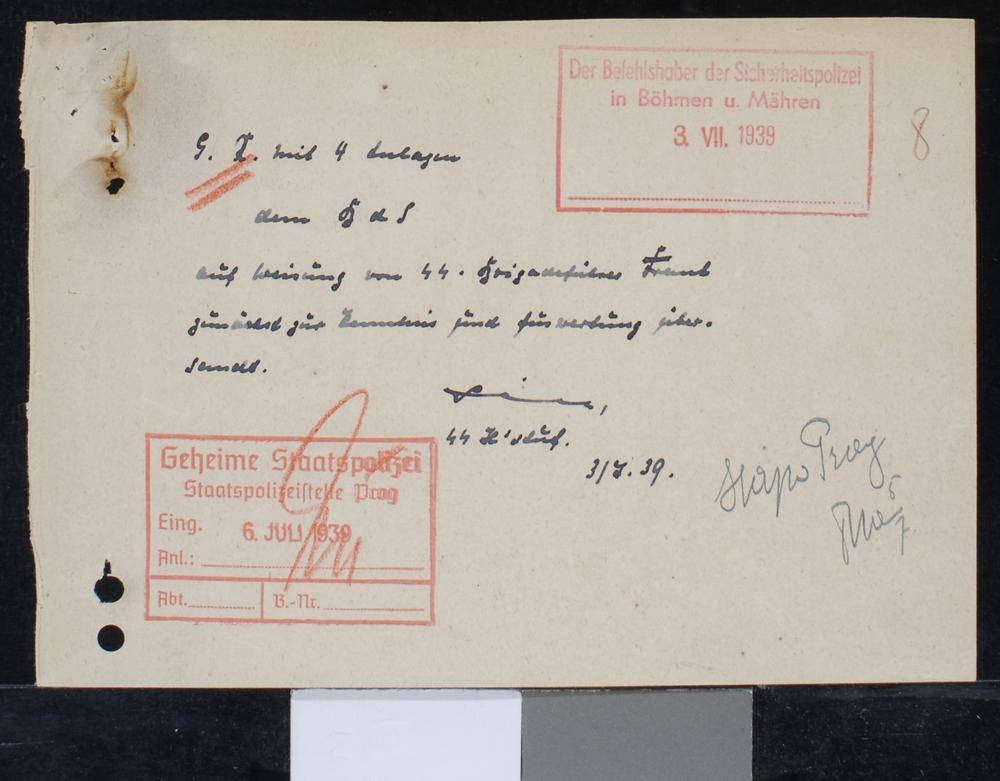 Der Befehlshaber der Sicherheitspolizei
in Böhmen u. Mähren
3. VII. 1939
8
G. R. mit 4 Anlagen
dem B d S
auf Weisung von SS-Brigadeführer Frank
zunächst zur Kenntnis und Auswertung über-
sandt.
SS H'stuf.
3/7. 39.
Stapo Prag
5
7
Geheime Staatspolizei
Staatspolizeistelle Prag
Eing. 6. JULI 1939
Anl.:
Abt. B.-Nr.